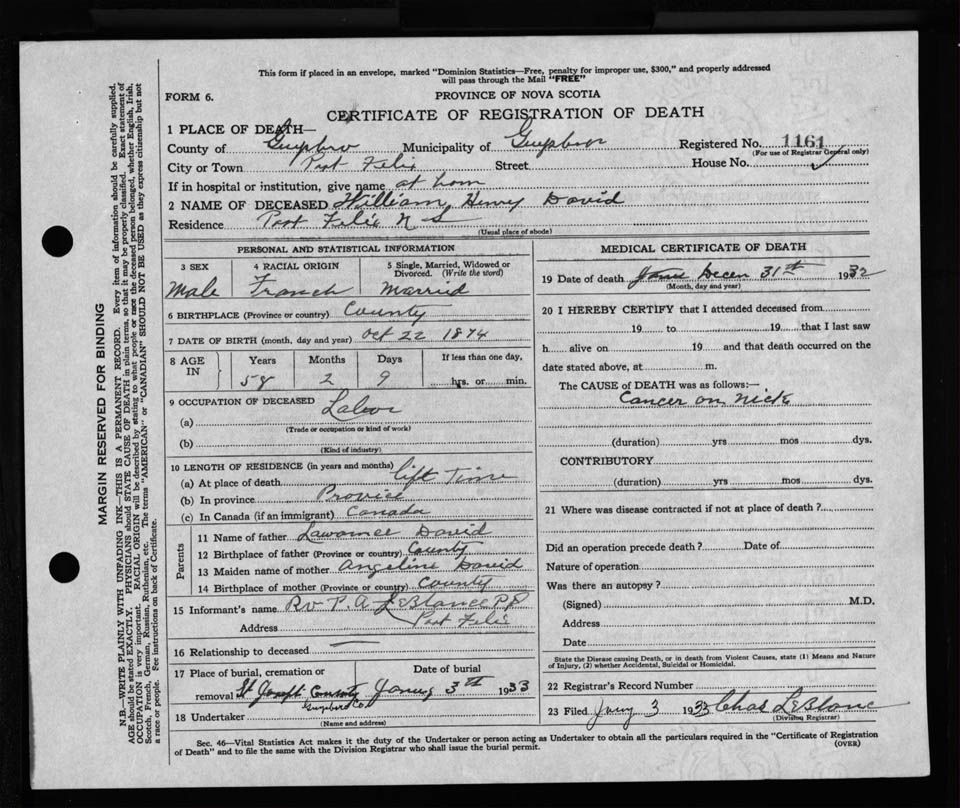 This form if placed in an envelope, marked "Dominion Statistics—Free, penalty for improper use, $300," and properly addressed
will pass through the Mail "FREE"
FORM 6.
PROVINCE OF NOVA SCOTIA
CERTIFICATE OF REGISTRATION OF DEATH
1 PLACE OF DEATH—
County of Guysboro Municipality of Guysboro Registered No. 1161
(For use of Registrar General only)
City or Town Port Felix Street House No.
If in hospital or institution, give name at hom
2 NAME OF DECEASED William Henry David
Residence Port Felix N S
(Usual place of abode)
PERSONAL AND STATISTICAL INFORMATION
3 SEX 4 RACIAL ORIGIN 5 Single, Married, Widowed or Divorced. (Write the word)
Male Franch Marrid
6 BIRTHPLACE (Province or country) County
7 DATE OF BIRTH (month, day and year) Oct 22 1874
8 AGE IN Years Months Days If less than one day,
58 2 9 hrs. or min.
9 OCCUPATION OF DECEASED
(a) Labor
(Trade or occupation or kind of work)
(b)
(Kind of industry)
10 LENGTH OF RESIDENCE (in years and months)
(a) At place of death lift Time
(b) In province Provice
(c) In Canada (if an immigrant) Canada
Parents
11 Name of father David
12 Birthplace of father (Province or country) County
13 Maiden name of mother Angeline David
14 Birthplace of mother (Province or country) County
15 Informant's name Rv P. A. LeBlance PP
Address Port Felix
16 Relationship to deceased —
17 Place of burial, cremation or removal Date of burial
St Joseph 3th 1933
Guysboro Co
18 Undertaker
(Name and address)
MEDICAL CERTIFICATE OF DEATH
19 Date of death Decem 31th 1932
(Month, day and year)
20 I HEREBY CERTIFY that I attended deceased from
19 to 19 that I last saw
h alive on 19 and that death occurred on the
date stated above, at m.
The CAUSE of DEATH was as follows:—
Cancer on nick
(duration) yrs mos dys.
CONTRIBUTORY
(duration) yrs mos dys.
21 Where was disease contracted if not at place of death?
Did an operation precede death? Date of
Nature of operation
Was there an autopsy?
(Signed) M.D.
Address
Date
State the Disease causing Death, or in death from Violent Causes, state (1) Means and Nature
of Injury, (2) whether Accidental, Suicidal or Homicidal.
22 Registrar's Record Number
23 Filed Jany 3 1933 Chas LeBlanc
(Division Registrar)
Sec. 46—Vital Statistics Act makes it the duty of the Undertaker or person acting as Undertaker to obtain all the particulars required in the "Certificate of Registration
of Death" and to file the same with the Division Registrar who shall issue the burial permit.
(OVER)
MARGIN RESERVED FOR BINDING
N.B.—WRITE PLAINLY WITH UNFADING INK—THIS IS A PERMANENT RECORD. Every item of information should be carefully supplied.
AGE should be stated EXACTLY. PHYSICIANS should STATE CAUSE OF DEATH in plain terms, so that it may be properly classified. Exact statement of
OCCUPATION is very important. RACIAL ORIGIN will be described by stating to what people or race the deceased person belonged, whether English, Irish,
Scotch, French, German, Russian, Ruthenian, etc. The terms "AMERICAN" or "CANADIAN" SHOULD NOT BE USED as they express citizenship but not
a race or people. See instructions on back of Certificate.